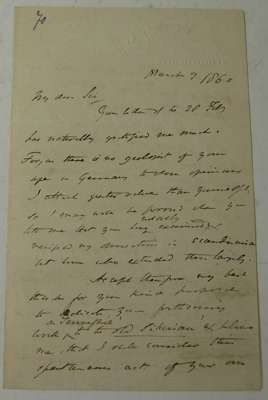 70
March 9 1860
My dear Sir
Your letter of the 28 Feby
has naturally gratified me much.
For, as there is no geologist of your
age in Germany to whose opinions
I attach greater value than yourself,
so I may well be proud when you
tell me that you have
really
my in Scandinavia
but have also extended them largely.
Accept therefore my best
thanks for your kind proposal
to dedicate your forthcoming
work to the old Silurian &
me, that I only consider this
spontaneous act of your own